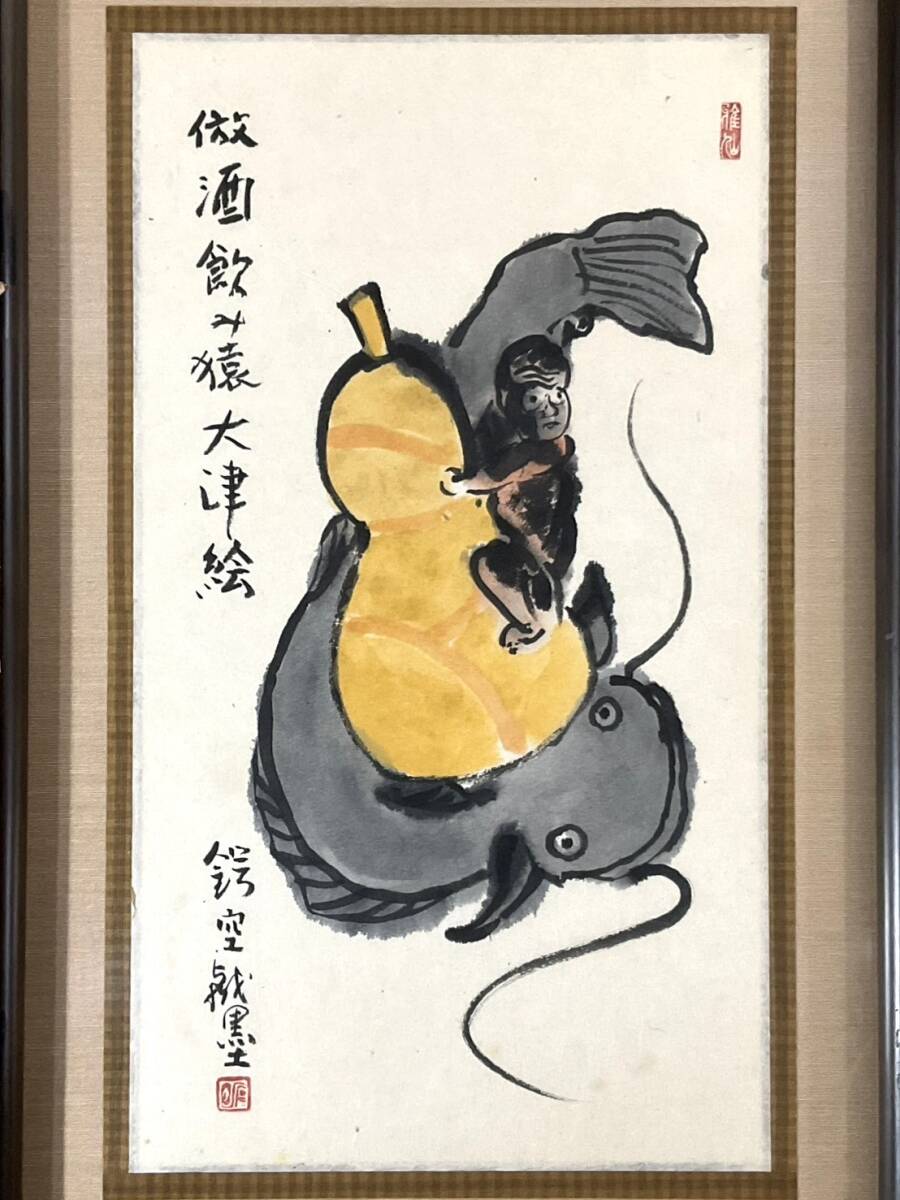 倣酒飲み猿大津絵
鍔空戯墨